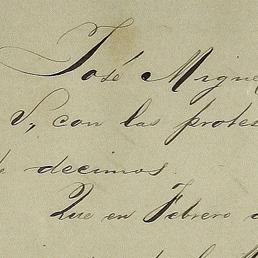 José Migue
S, con las protes
decimos.
Que en Febrero